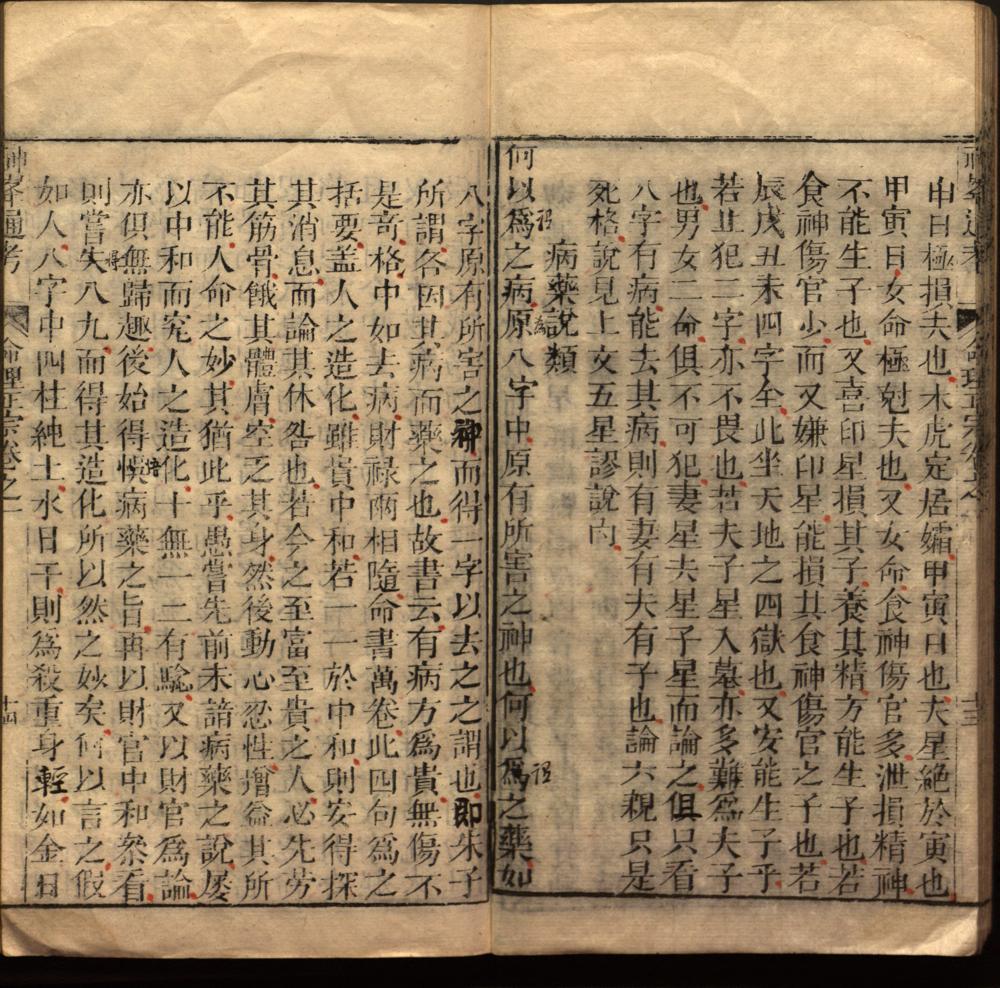 申日極損夫也木虎定居孀甲寅日也夫星絕於寅也
甲寅日女命極尅夫也又女命食神傷官多泄損精神
不能生子也又喜印星損其子養其精方能生子也若
食神傷官少而又嫌印星能損其食神傷官之子也若
辰戌丑未四字全此坐天地之四獄也又安能生子乎
若止犯二字亦不畏也若夫子星入墓亦多難爲夫子
也男女二命俱不可犯妻星夫星子星而論之但只看
八字有病能去其病則有妻有夫有子也論六親只是
死格說見上文五星謬說內
病藥說類
何以爲之病原八字中原有所害之神也何以爲之藥如
八字原有所害之神而得一字以去之之謂也即朱子
所謂各因其病而藥之也故書云有病方爲貴無傷不
是竒格中如去病財禄兩相隨命書萬卷此四句爲之
括要盖人之造化雖貴中和若一一於中和則安得探
其消息而論其休咎也若今之至富至貴之人必先劳
其筋骨餓其體膚空乏其身然後動心忍性增益其所
不能人命之妙其猶此乎愚嘗先前未諳病藥之說屡
以中和而究人之造化十無一二有驗又以財官爲論
亦俱無歸趣後始得悞病藥之旨再以財官中和叅看
則嘗失八九而得其造化所以然之妙矣何以言之假
如人八字中四柱純土水日干則爲殺重身輕如金日
神峯通考
命理正宗卷之一